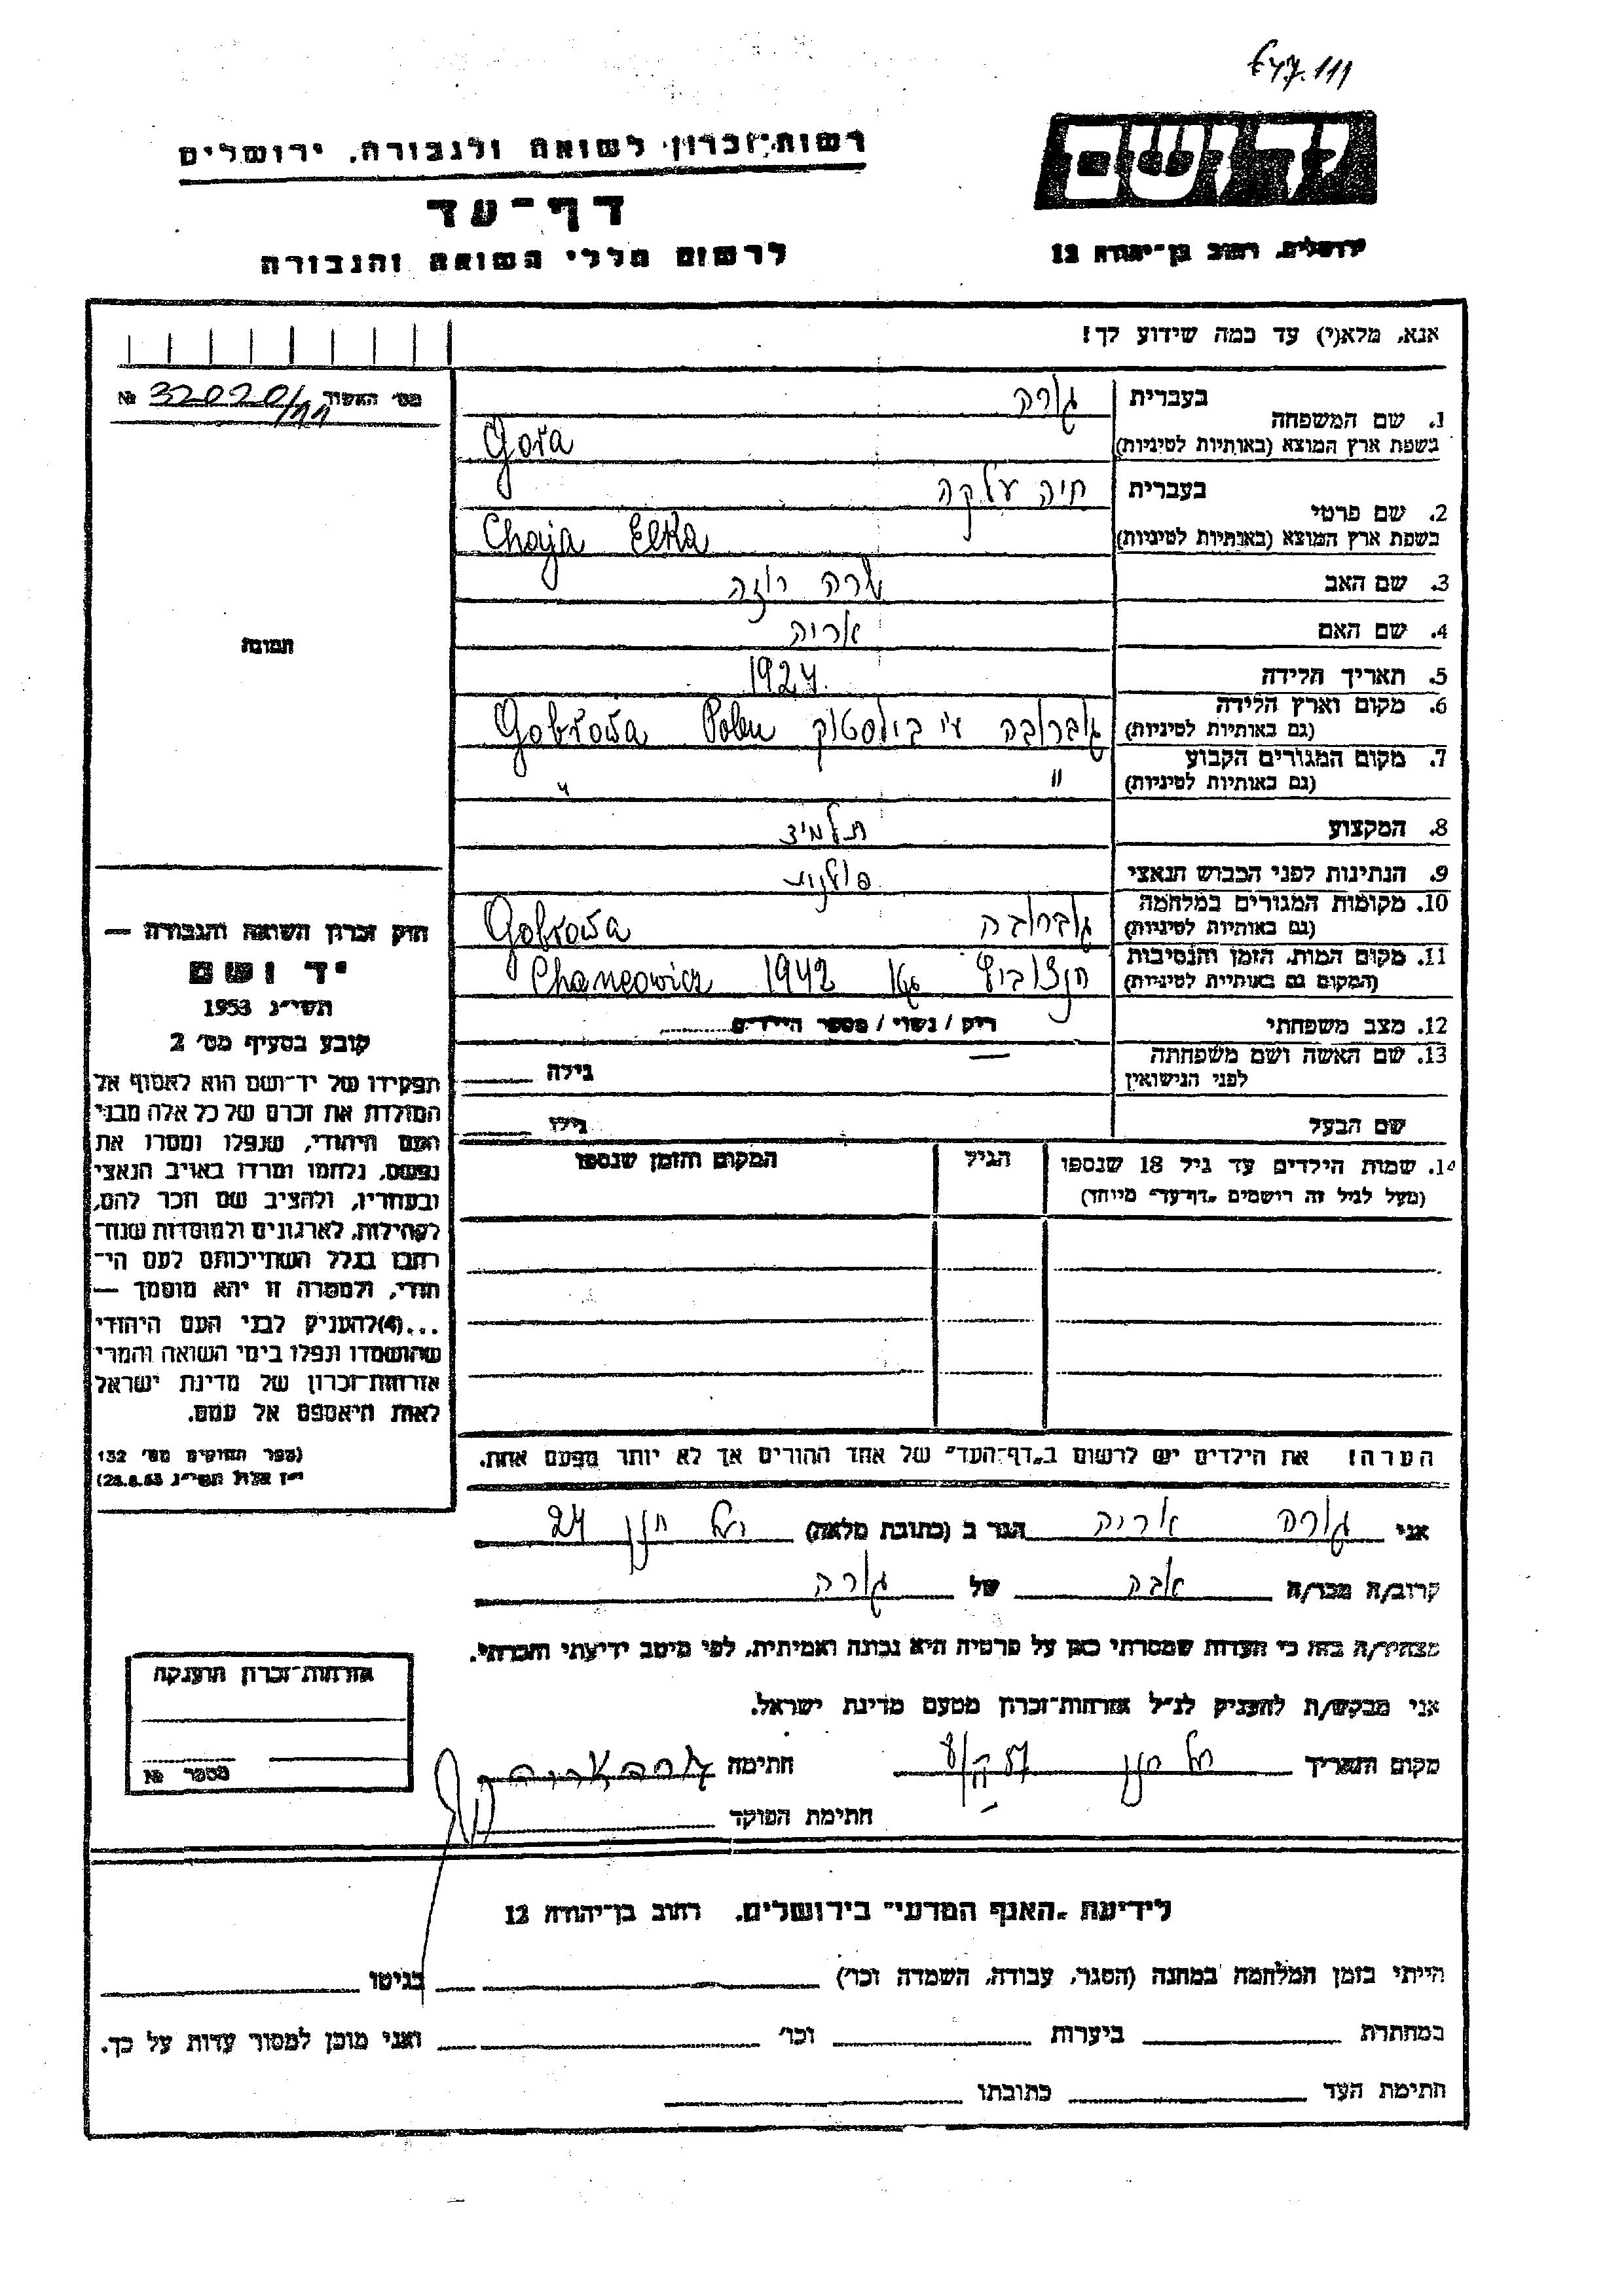 647.111
רשות־זכרון לשואה ולגבורה, ירושלים
יד ושם
דף־עד
ירושלים, רחוב בן־יהודה 12
לרשום חללי השואה והגבורה
אנא, מלא(י) עד כמה שידוע לך!
מס׳ האשור 32020/11 №
1. שם המשפחה
בעברית גורה
בשפת ארץ המוצא (באותיות לטיניות) Gora
2. שם פרטי
בעברית חיה עלקה
בשפת ארץ המוצא (באותיות לטיניות) Chaja Elka
3. שם האב שרה רוזה
4. שם האם אריה
5. תאריך הלידה 1924
תמונה
6. מקום וארץ הלידה (גם באותיות לטיניות) גוברובה ע״י ביליסטוק Gobrowa Polen
7. מקום המגורים הקבוע (גם באותיות לטיניות) " "
8. המקצוע תלמיד
9. הנתינות לפני הכבוש הנאצי פולנית
10. מקומות המגורים במלחמה (גם באותיות לטיניות) גוברובה Gobrowa
11. מקום המות, הזמן והנסיבות (המקום גם באותיות לטיניות) 1942 Chancowicz
12. מצב משפחתי רוק / נשוי / מספר הילדים
13. שם האשה ושם משפחתה לפני הנישואין — גילה
שם הבעל גילו
14. שמות הילדים עד גיל 18 שנספו (מעל לגיל זה רושמים „דף־עד״ מיוחד)
הגיל
המקום והזמן שנספו
חוק זכרון השואה והגבורה —
יד ושם
תשי״ג 1953
קובע בסעיף מס׳ 2
תפקידו של יד־ושם הוא לאסוף אל
המולדת את זכרם של כל אלה מבני
העם היהודי, שנפלו ומסרו את
נפשם, נלחמו ומרדו באויב הנאצי
ובעוזריו, ולהציב שם וזכר להם,
לקהילות, לארגונים ולמוסדות שנח־
רבו בגלל השתייכותם לעם הי־
הודי, ולמטרה זו יהא מוסמך —
...(4)להעניק לבני העם היהודי
שהושמדו ונפלו בימי השואה והמרי
אזרחות־זכרון של מדינת ישראל
לאות היאספם אל עמם.
(ספר החוקים מס׳ 132
י״ז אלול תשי״ג 28.8.53)
הערה! את הילדים יש לרשום ב„דף־העד״ של אחד ההורים אך לא יותר מפעם אחת.
אני גורה אריה הגר ב (כתובת מלאה) חנן 24
קרוב/ה מכר/ה אבה של גורה
מצהיר/ה בזה כי העדות שמסרתי כאן על פרטיה היא נכונה ואמיתית, לפי מיטב ידיעתי והכרתי.
אני מבקש/ת להעניק לנ״ל אזרחות־זכרון מטעם מדינת ישראל.
מקום ותאריך חנן חתימה גורה אריה
חתימת הפוקד
אזרחות־זכרון הוענקה
מספר №
לידיעת „האגף המדעי״ בירושלים, רחוב בן־יהודה 12
הייתי בזמן המלחמה במחנה (הסגר, עבודה, השמדה וכו׳) בגיטו
במחתרת ביערות וכו׳ ואני מוכן למסור עדות על כך.
חתימת העד כתובתו